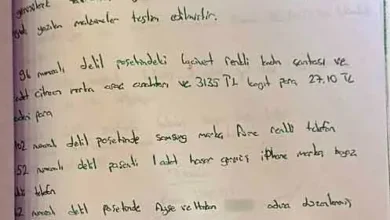 yazılan malzemeler teslim edilmiştir.
94 numaralı delil poşetindeki lacivert renkli kadın çantası ve
adet citroen marka araç anahtarı ve 3135 TL kağıt para 27.10 TL
para
102 numaralı delil poşetinde samsung marka füme renkli telefon
52 numaralı delil poşetinde 1 adet hasar görmüş iPhone marka beyaz
telefon
2 numaralı delil poşetinde Ayşe ve Hakan adına düzenlenmiş